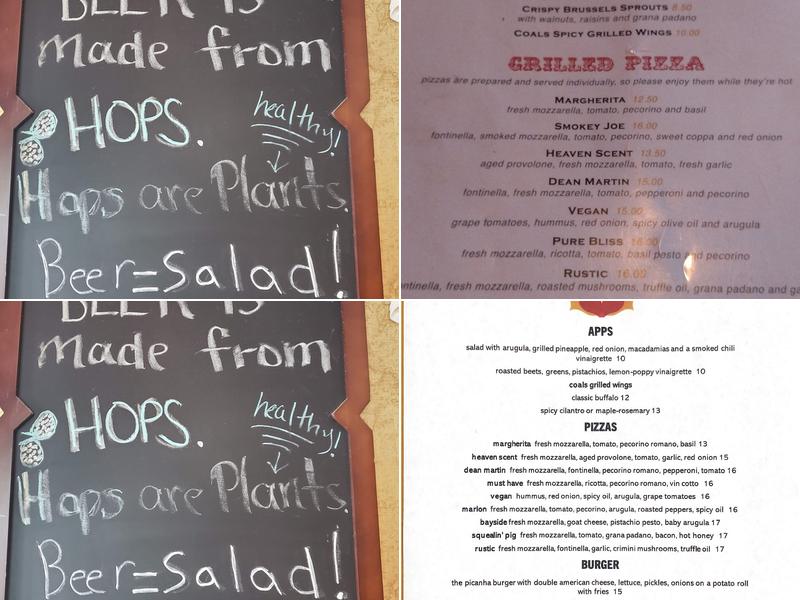 BEER IS
made from
HOPS.
healthy!
Hops are Plants.
Beer=Salad!
CRISPY BRUSSELS SPROUTS 8.50
with walnuts, raisins and grana padano
COALS SPICY GRILLED WINGS 10.00
GRILLED PIZZA
pizzas are prepared and served individually, so please enjoy them while they're hot
MARGHERITA 12.50
fresh mozzarella, tomato, pecorino and basil
SMOKEY JOE 16.00
fontinella, smoked mozzarella, tomato, pecorino, sweet coppa and red onion
HEAVEN SCENT 13.50
aged provolone, fresh mozzarella, tomato, fresh garlic
DEAN MARTIN 15.00
fontinella, fresh mozzarella, tomato, pepperoni and pecorino
VEGAN 15.00
grape tomatoes, hummus, red onion, spicy olive oil and arugula
PURE BLISS 16.00
fresh mozzarella, ricotta, tomato, basil pesto and pecorino
RUSTIC 16.00
fresh mozzarella, roasted mushrooms, truffle oil, grana padano and
BEER IS
made from
HOPS.
healthy!
Hops are Plants.
Beer=Salad!
APPS
salad with arugula, grilled pineapple, red onion, macadamias and a smoked chili
vinaigrette 10
roasted beets, greens, pistachios, lemon-poppy vinaigrette 10
coals grilled wings
classic buffalo 12
spicy cilantro or maple-rosemary 13
PIZZAS
margherita fresh mozzarella, tomato, pecorino romano, basil 13
heaven scent fresh mozzarella, aged provolone, tomato, garlic, red onion 15
dean martin fresh mozzarella, fontinella, pecorino romano, pepperoni, tomato 16
must have fresh mozzarella, ricotta, pecorino romano, vin cotto 16
vegan hummus, red onion, spicy oil, arugula, grape tomatoes 16
marlon fresh mozzarella, tomato, pecorino, arugula, roasted peppers, spicy oil 16
bayside fresh mozzarella, goat cheese, pistachio pesto, baby arugula 17
squealin' pig fresh mozzarella, tomato, grana padano, bacon, hot honey 17
rustic fresh mozzarella, fontinella, garlic, crimini mushrooms, truffle oil 17
BURGER
the picanha burger with double american cheese, lettuce, pickles, onions on a potato roll
with fries 15